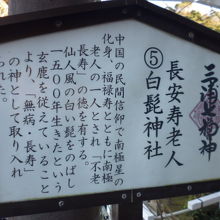 長安寿老人
⑤白髭神社
中国の民間信仰で南極星の
化身、福禄寿とともに南極
老人の一人とされ「不老
長寿」の徳を有する。
仙人風の白い髭をのばし
一五〇〇年生きたという
玄鹿を従えていること
より、「無病・長寿」
の神として取り入れ
られた。